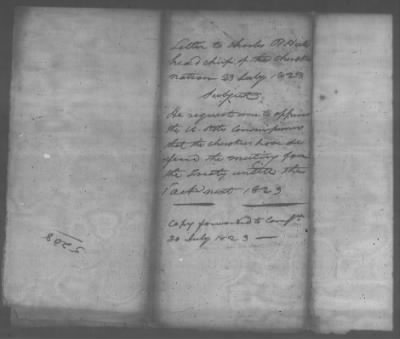 Letter to Charles R. Hicks
head chief of the Cherokee
nation 23 July 1823
Subject
He requests me to apprise
the U. States Commissioners
that the cherokees have de
the meeting for
the treaty untill the
next 1823
Copy forwarded to Comrs
30 July 1823
5208